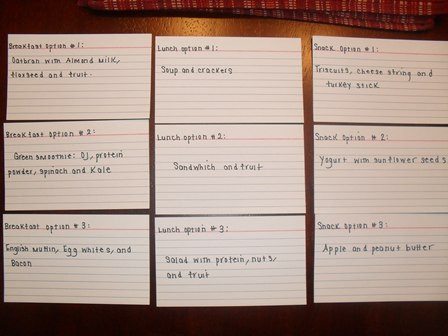 Breakfast Option #1:
Oatbran with Almond Milk,
flaxseed and fruit.
Lunch option #1:
Soup and crackers
Snack Option #1:
Triscuits, cheese string and
turkey stick
Breakfast option #2:
Green smoothie: OJ, protein
powder, spinach and Kale
Lunch option #2:
Sandwhich and fruit
Snack option #2:
Yogurt with sunflower seeds
Breakfast option #3:
English Muffin, Egg whites, and
Bacon
Lunch option #3:
Salad with protein, nuts,
and fruit
Snack option #3:
Apple and peanut butter